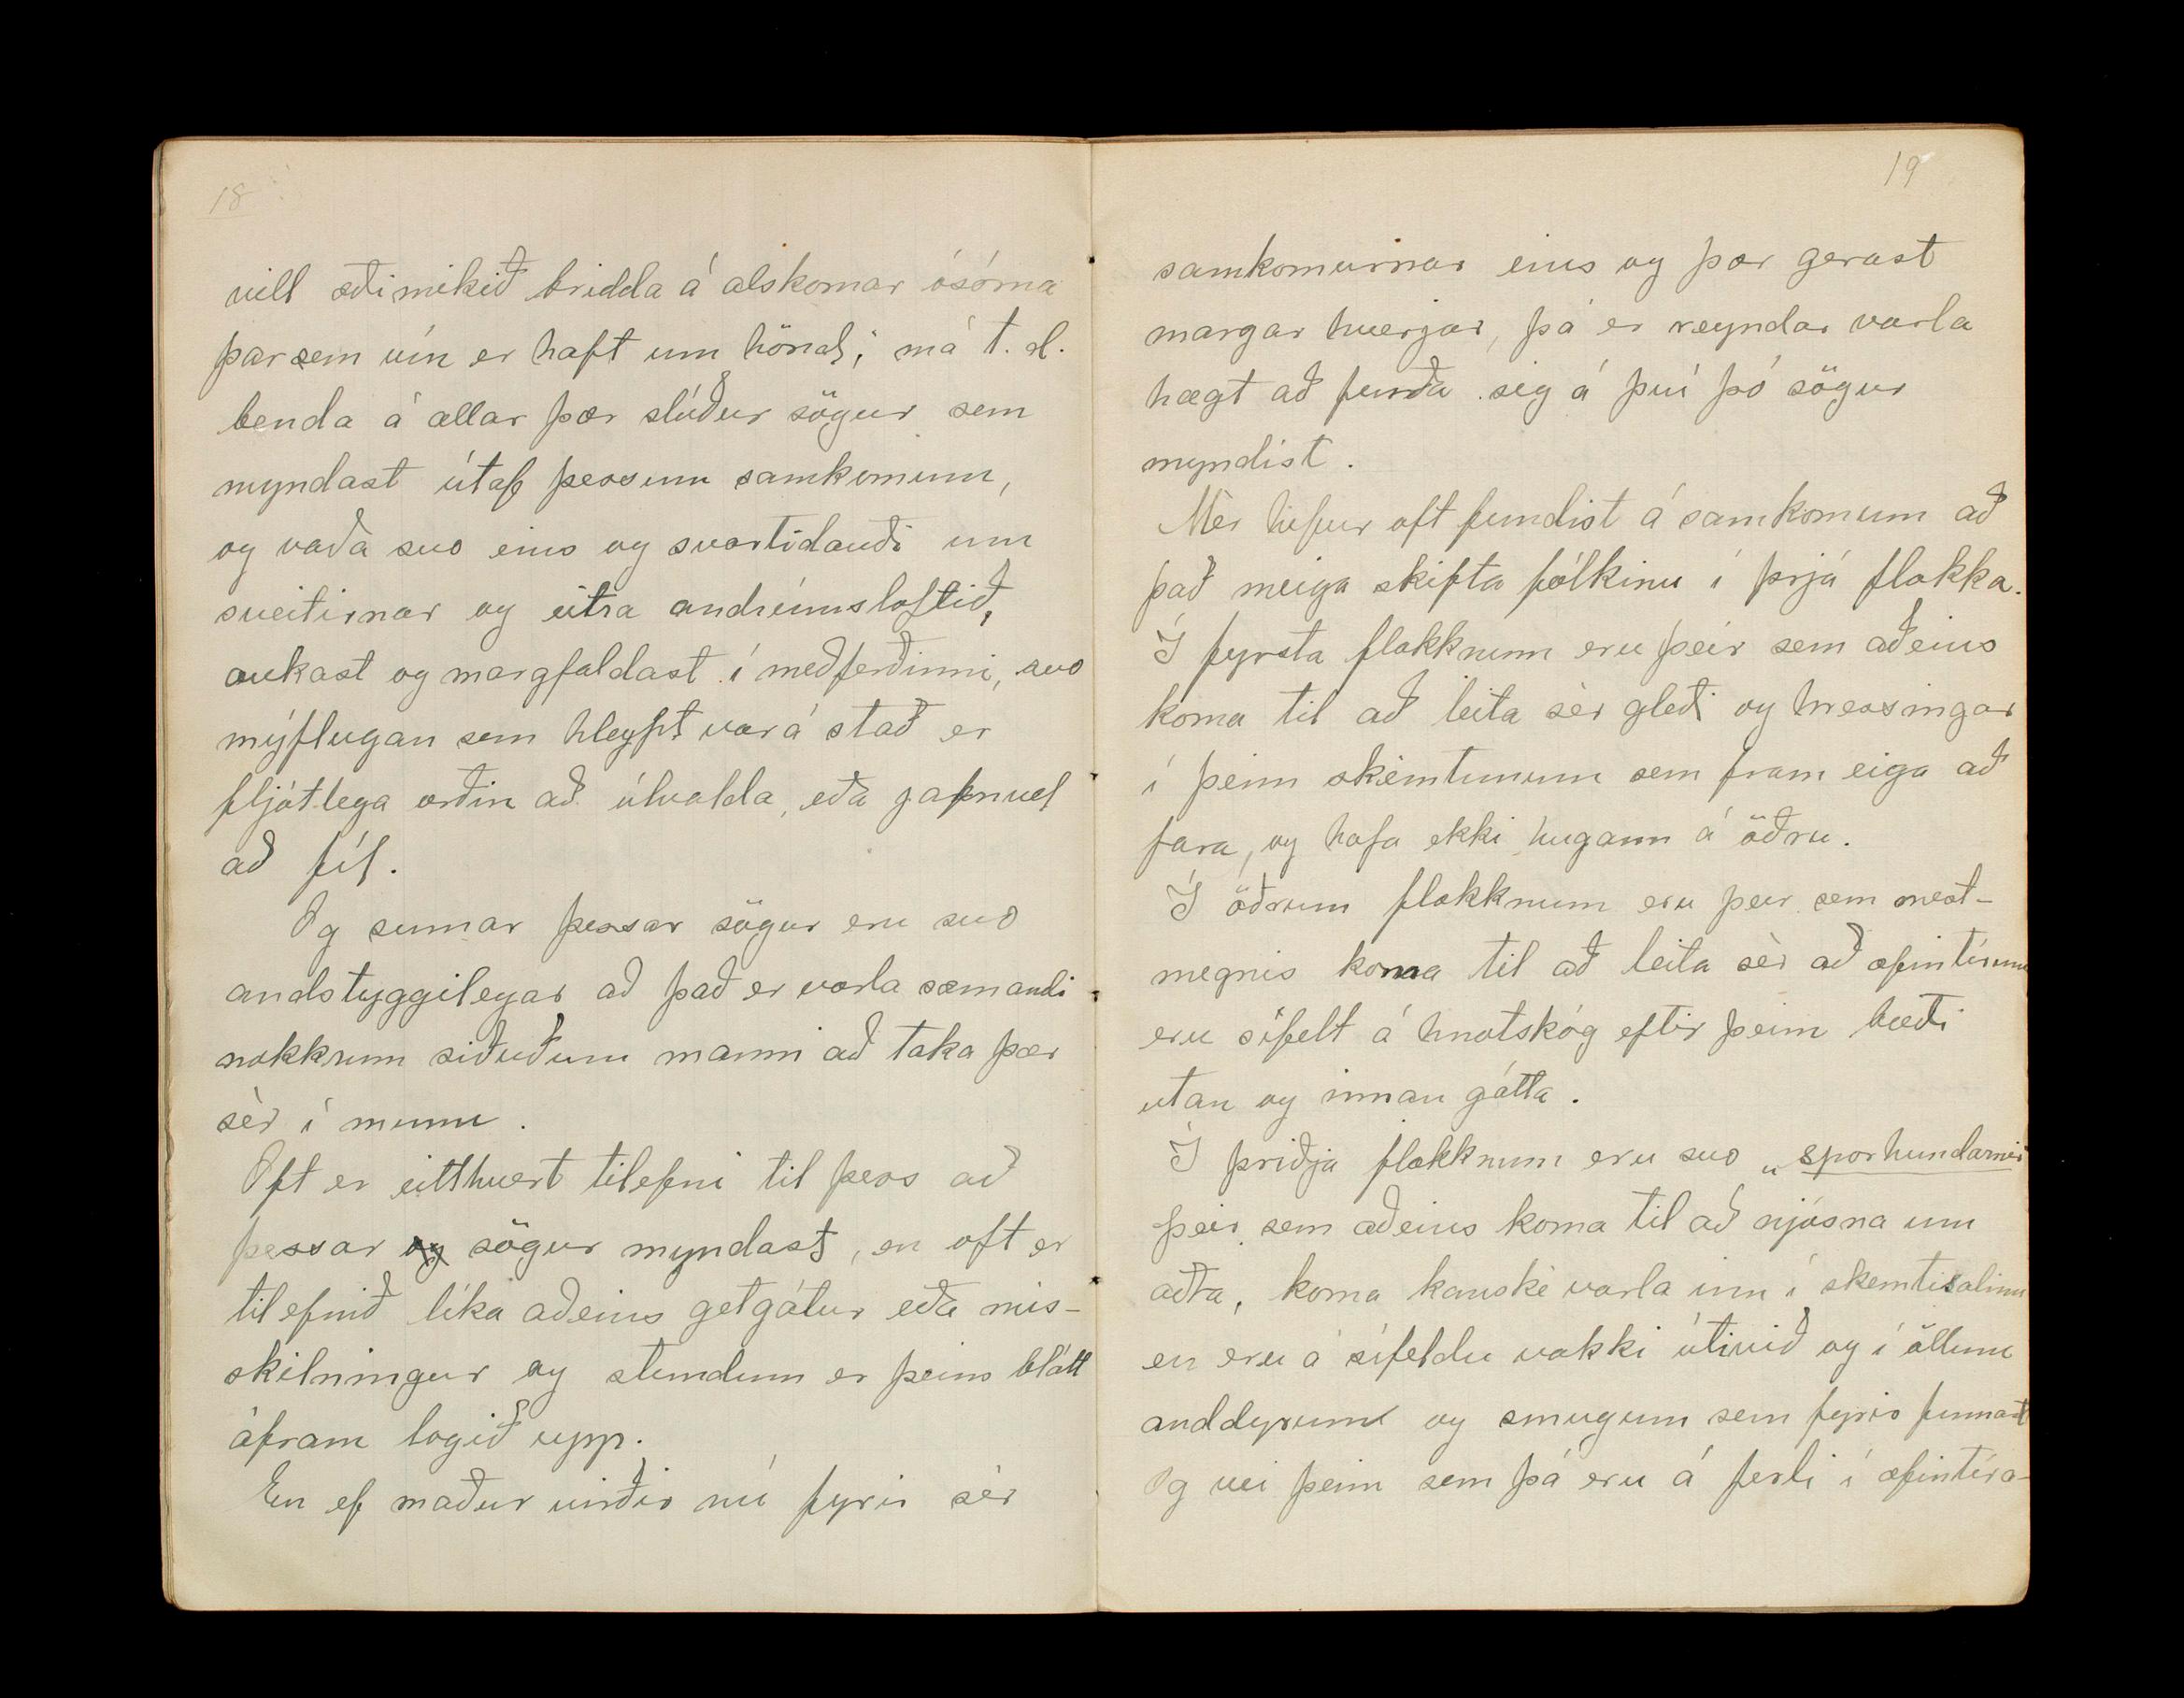 18
vill æðimikið bridda á alskomar ósóma
þarsem vín er haft um hönd; má t.d.
benda á allar þær slúður sögur sem
myndast útaf þessum samkomum,
og vaða svo eins og svartidauði um
sveitirnar og eitra andrúmsloftið,
aukast og margfaldast í meðferðinni, svo
mýflugan sem hleypt var á stað er
fljótlega orðin að úlvalda, eða jafnvel
að fíl.
Og sumar þessar sögur eru svo
andstyggilegar að það er varla sæmandi
nokkrum siðuðum manni að taka þær
sér í munn.
Oft er eitthvert tilefni til þess að
þessar og sögur myndast, en oft er
tilefnið líka aðeins getgátur eða mis-
skilningur og stundum er þeim blátt
áfram logið upp.
En ef maður virðir nú fyrir sér
19
samkomurnar eins og þær gerast
margar hverjar, þá er reyndar varla
hægt að furða sig á því þó sögur
myndist.
Mér hefur oft fundist á samkomum að
það meiga skifta fólkinu í þrjá flokka.
Í fyrsta flokknum eru þeir sem aðeins
koma til að leita sér gleði og hressingar
í þeim skémtunum sem fram eiga að
fara, og hafa ekki hugann á öðru.
Í öðrum flokknum eru þeir sem mest-
megnis koma til að leita sér að æfintírum
eru sífelt á hnotskóg eftir þeim bæði
utan og innan gátta.
Í þriðja flokknum eru svo „sporhundarnir
þeir sem aðeins koma til að njósna um
aðra, koma kanské varla inn í skemtisalinn
en eru á sífeldu vakki útivið og í öllum
anddyrum og smugum sem fyrir finnast
Og vei þeim sem þá eru á ferli í æfintíra-